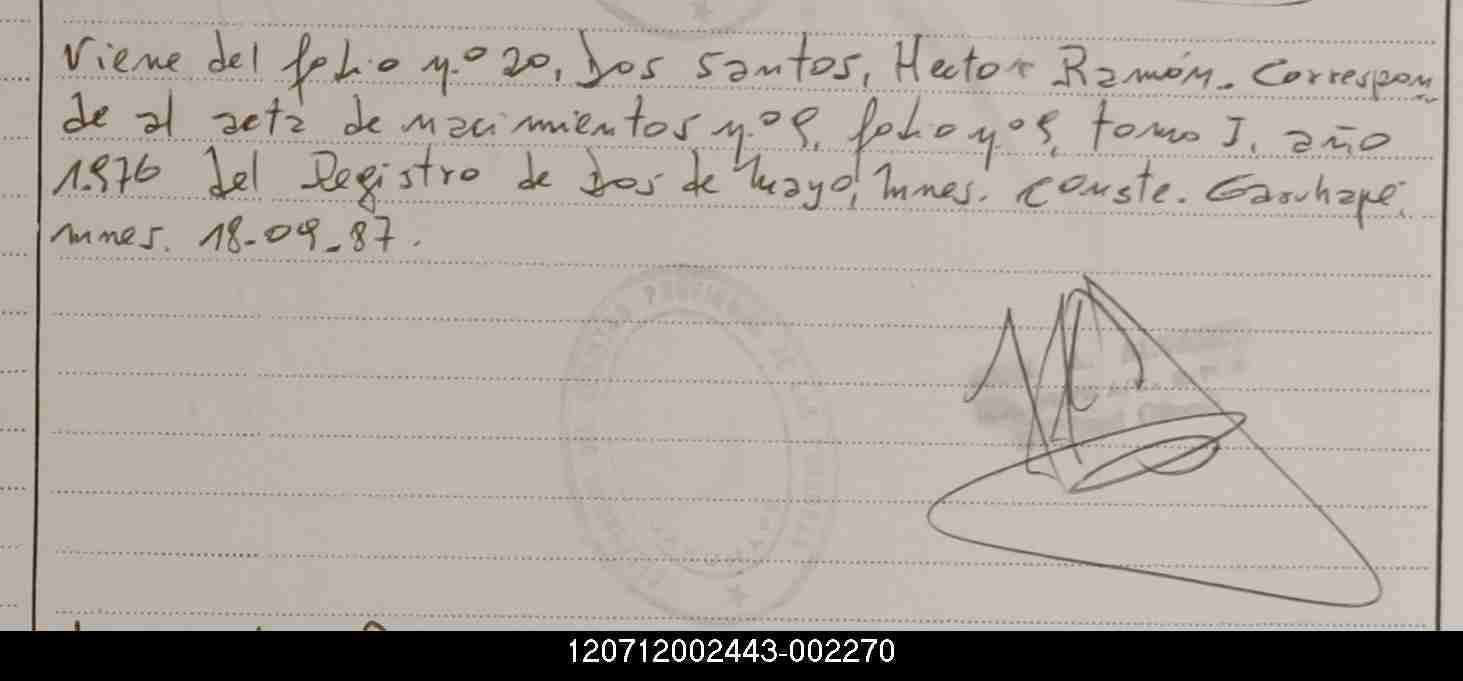 Viene del folio n.º 20, Dos Santos, Hector Ramón. Correspon
de al acta de nacimientos n.º 9, folio n.º 9, tomo I, año
1.976 del Registro de Dos de Mayo, Mnes. Conste. Garuhapé.
Mnes. 18-09-87.
120712002443-002270